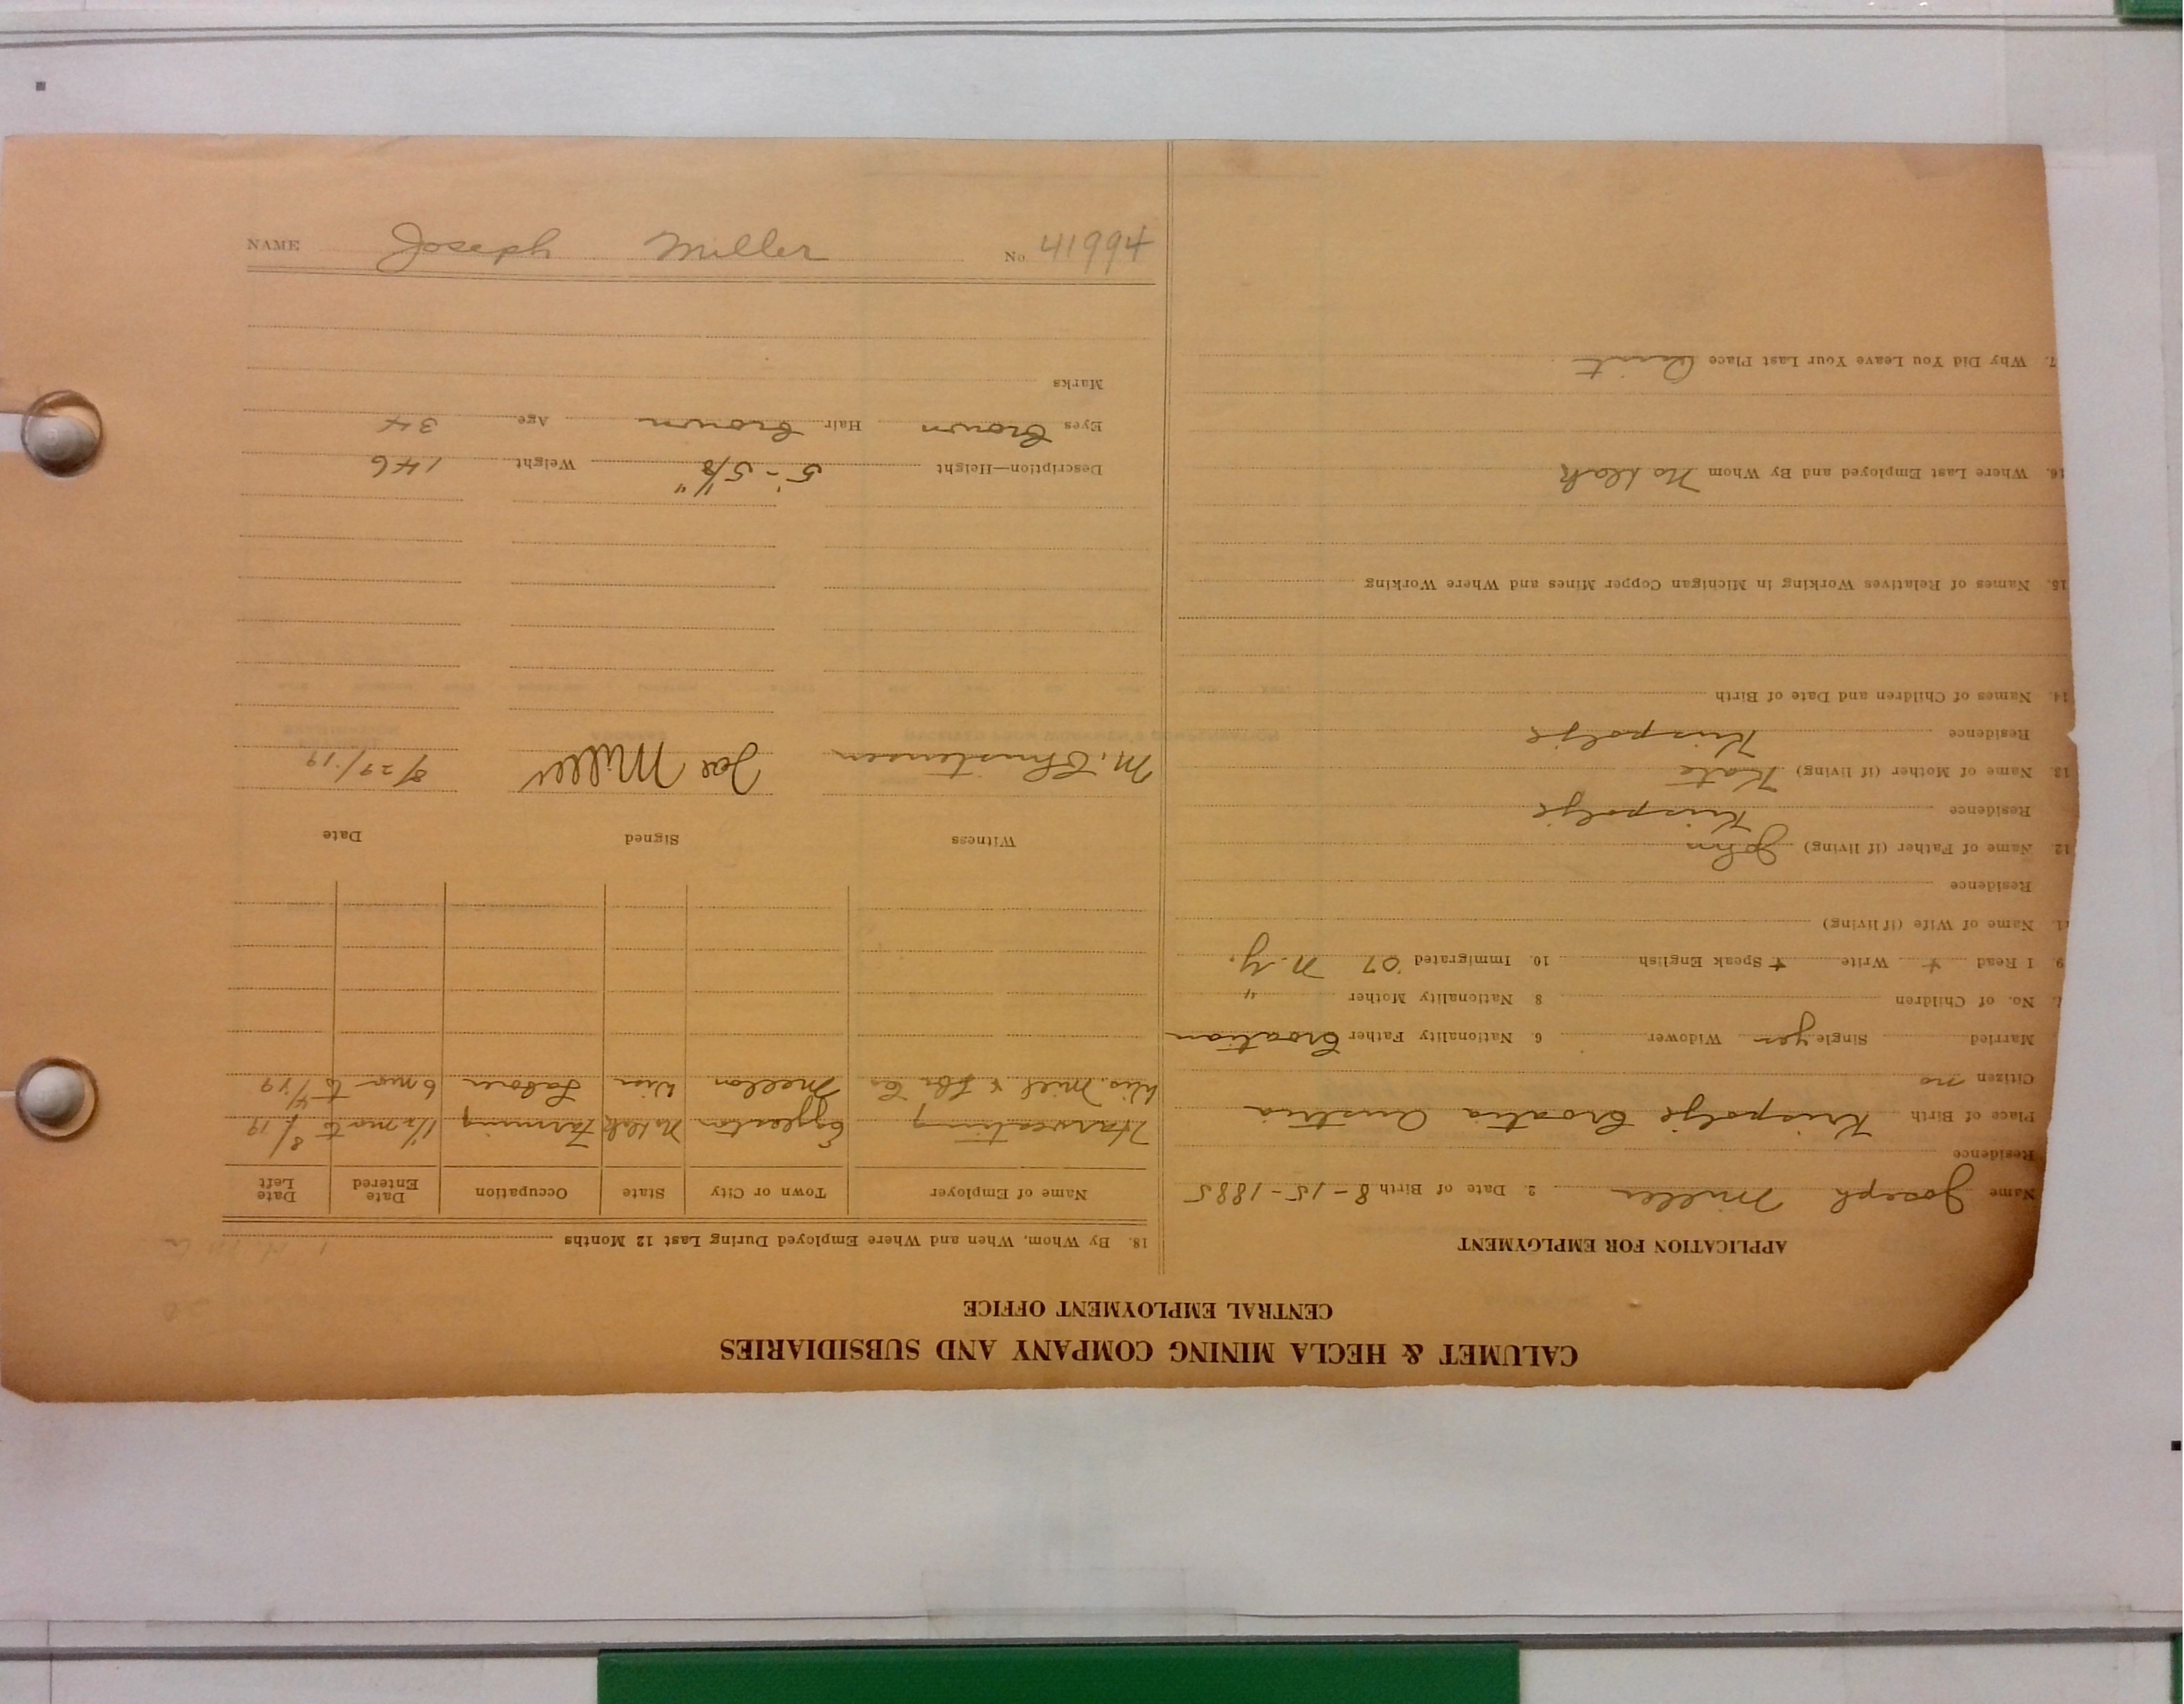 CALUMET & HECLA MINING COMPANY AND SUBSIDIARIES
CENTRAL EMPLOYMENT OFFICE
APPLICATION FOR EMPLOYMENT
Name Joseph Miller 2. Date of Birth 8-15-1885
Residence
Place of Birth Krispolje Croatia Austria
Citizen no
Married Single yes Widower 6 Nationality Father Croatian
No. of Children 8 Nationality Mother "
9 I Read + Write + Speak English 10. Immigrated '07 N.Y.
Name of Wife (if living)
Residence
12. Name of Father (if living) John
Residence Krispolje
13. Name of Mother (if living) Kate
Residence Krispolje
14. Names of Children and Date of Birth
15. Names of Relatives Working in Michigan Copper Mines and Where Working
16. Where Last Employed and By Whom No Dak
7. Why Did You Leave Your Last Place Quit
18. By Whom, When and Where Employed During Last 12 Months
Name of Employer Town or City State Occupation Date Entered Date Left
Harvesting Eggleston No Dak Farming 1 1/2 mo to 8/19
Wis. Mill & Lbr Co Mellen Wis Laborer 6 mo to 4/19
Witness Signed Date
M. Christensen Joe Miller 8/29/19
Description—Height 5'-5 1/8" Weight 146
Eyes Brown Hair Brown Age 34
Marks
NAME Joseph Miller No. 41994